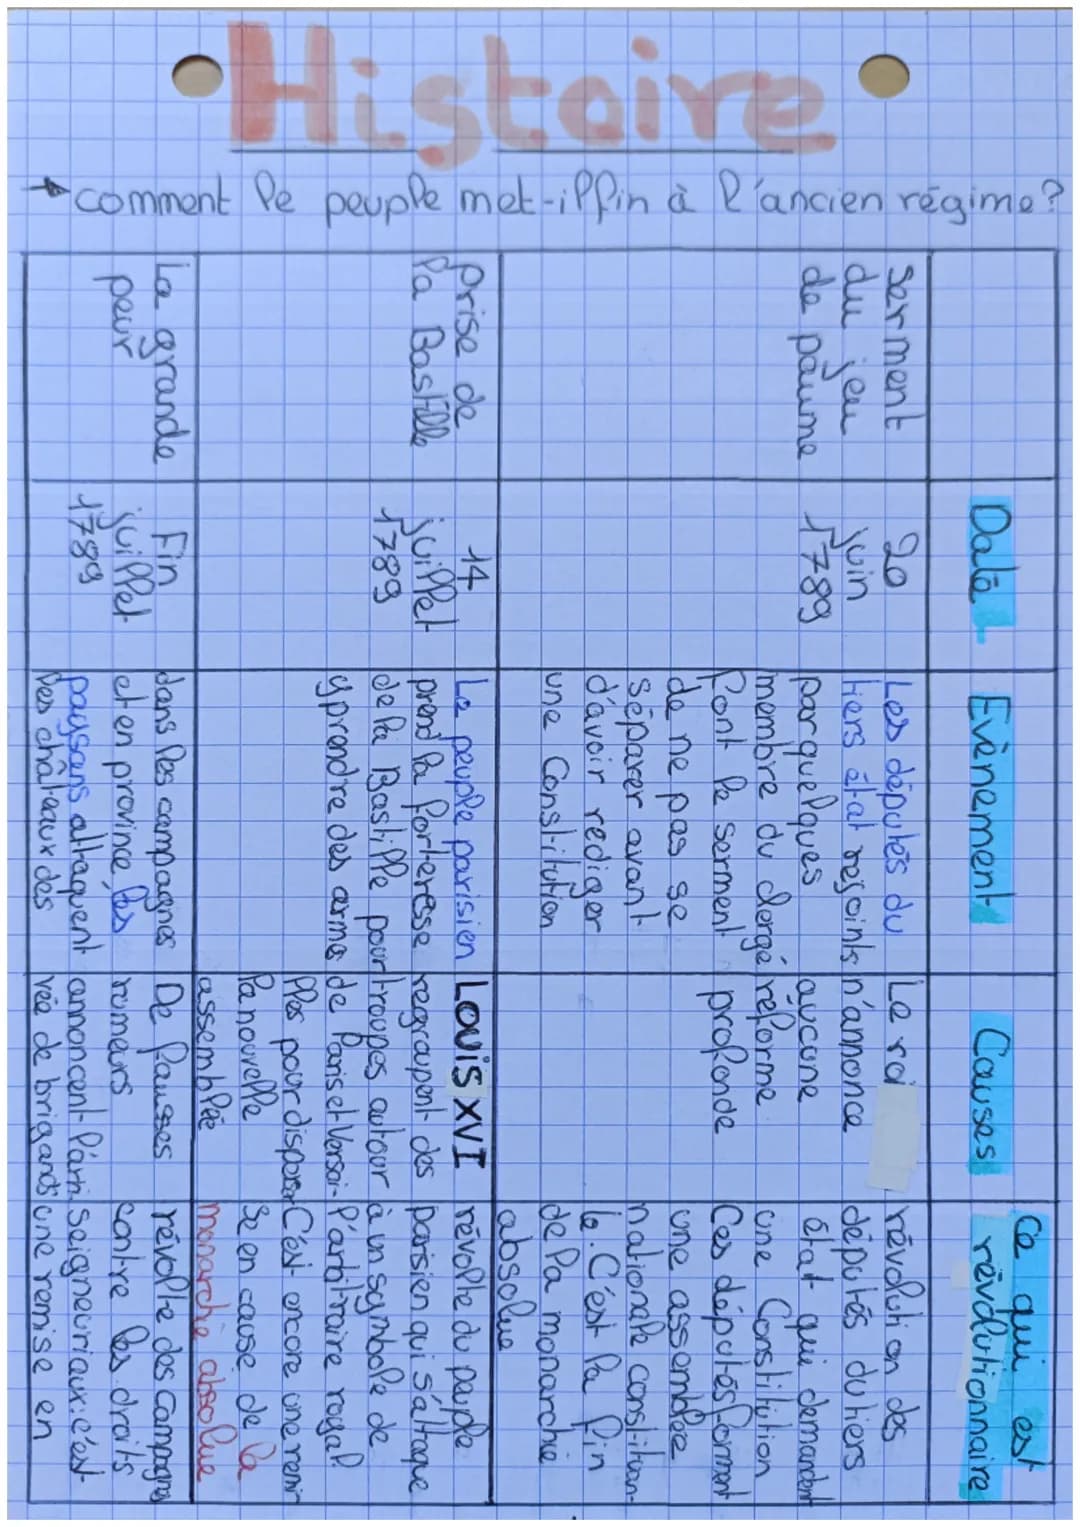 Histoire
comment le peuple met-il fin à l'ancien régime?
Date
Evènement
Causes
Ce qui est
révolutionnaire
serment
du jeu
de paume
20
juin
1789
Les députés du
tiers état rejoints
par quelques
membre du clergé
font le serment
de ne pas se
séparer avant
d'avoir rédiger
une Constitution
Le roi
n'annonce
aucune
réforme
profonde
révolution des
députés du tiers
état qui demandent
une Constitution
Ces députés forment
une assemblée
nationale constituan-
te. C'est la fin
de la monarchie
absolue
prise de
la Bastille
14
juillet
1789
Le peuple parisien
prend la forteresse
de la Bastille pour
y prendre des armes
Louis XVI
regroupent des
troupes autour
de Paris et Versai-
lles pour disperser
la nouvelle
assemblée
révolte du peuple
parisien qui s'attaque
à un symbole de
l'arbitraire royal.
C'est encore une remi-
se en cause de la
monarchie absolue
La grande
peur
Fin
juillet
1789
dans les campagnes
et en province, les
paysans attaquent
les châteaux des
De fausses
rumeurs
annoncent l'arri-
vée de brigands
révolte des campagnes
contre les droits
seigneuriaux. c'est
une remise en